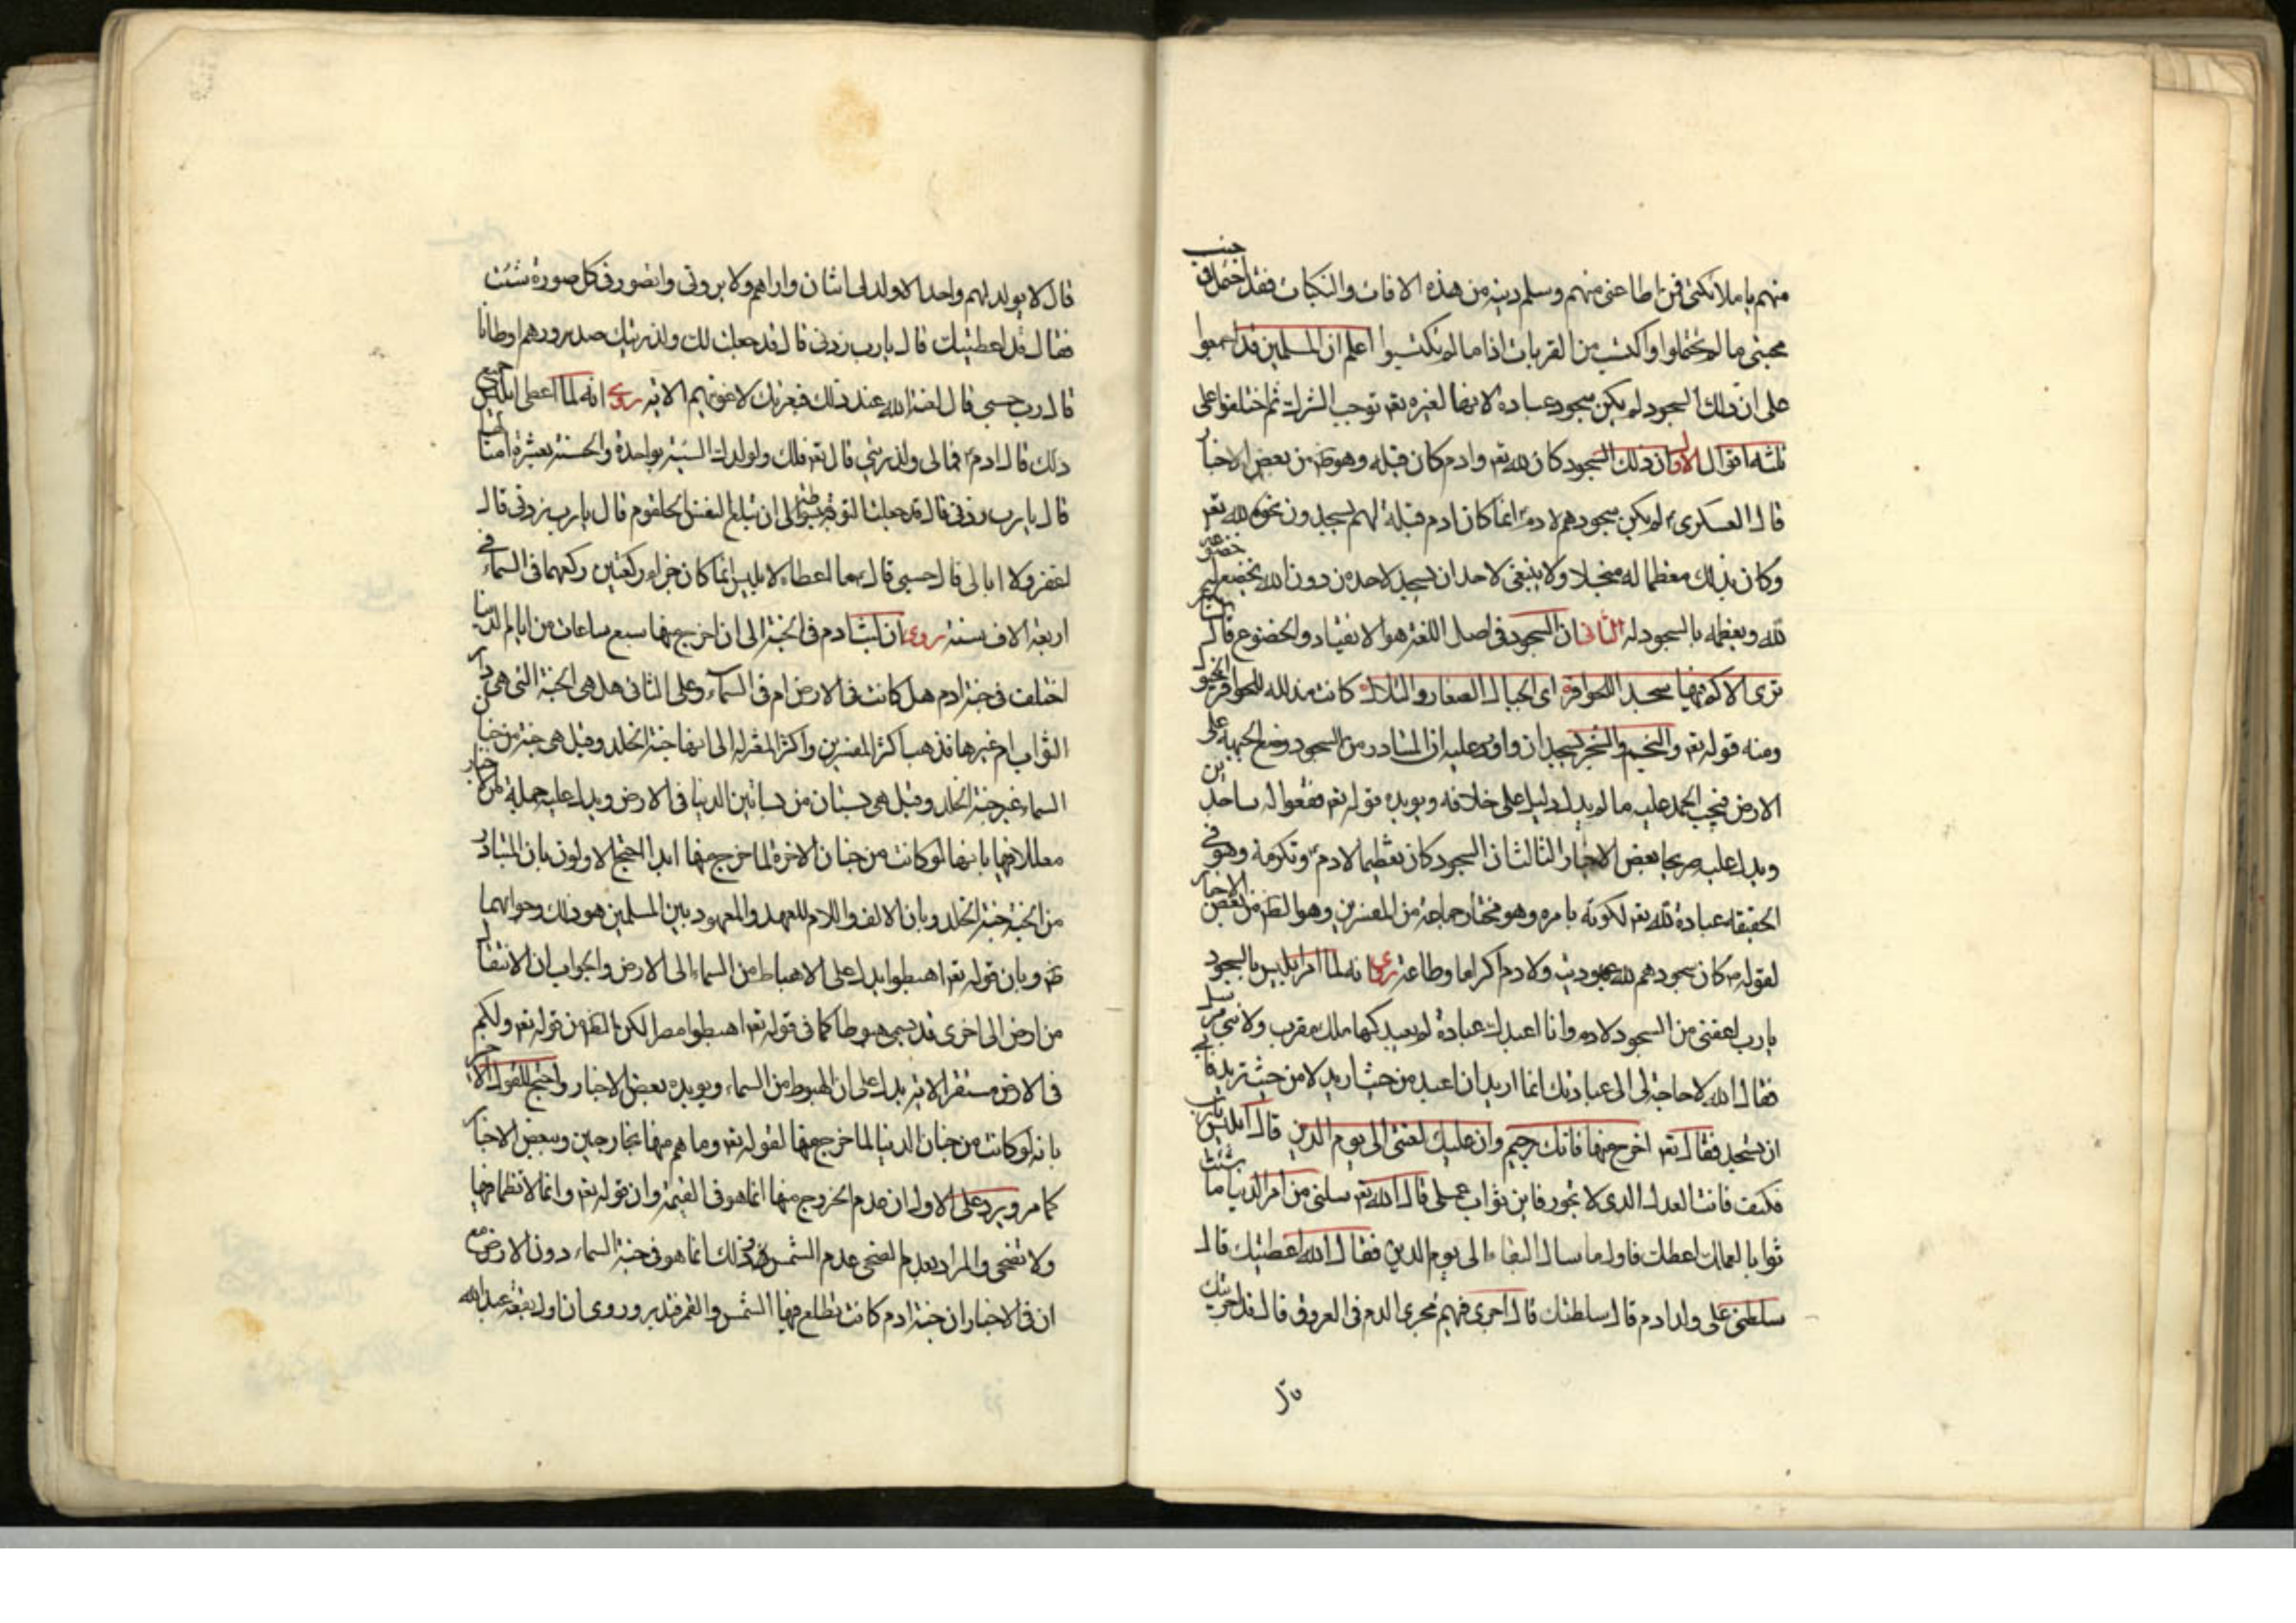 منهم يا ملائكتي فمن اطاعني منهم وسلم دينه من هذه الافات والنكبات فقد احتمل في جنب
محبتي ما لم تحتملوا واكتسب من القربات اذا ما لم تكتسبوا اعلم ان المسلمين قد اجمعوا
على ان ذلك السجود لم يكن سجود عبادة لانها لغيره تعه توجب الشرك ثم اختلفوا على
ثلثة اقوال الاول ان ذلك السجود كان لله تعه وادم كان قبلة وهو ظه من بعض الاخبار
قال العسكري لم يكن سجودهم لادم انما كان ادم قبلة لهم يسجدون نحوه لله تعه
وكان بذلك معظما له مبجلا ولا ينبغي لاحد ان يسجد لاحد من دون الله يخضع له خضوعه
لله ويعظمه بالسجود له الثاني ان السجود في اصل اللغة هو الانقياد والخضوع قال الشاعر
ترى الاكم فيها سجدا للحوافر اى الجبال الصغار والتلال كانت مذلله للحوافر الخيول
ومنه قوله تعه والنجم والشجر يسجدان واورد عليه ان المتبادر من السجود وضع الجبهة على
الارض فيجب الحمل عليه ما لم يدل دليل على خلافه ويويده قوله تعه فقعوا له ساجدين
ويدل عليه صريحا بعض الاخبار الثالث ان السجود كان تعظيما لادم وتكرمة وهو في
الحقيقة عبادة لله تعه لكونه بامره وهو مختار جماعة من المفسرين وهو الظه من بعض الاخبار
لقوله كان سجودهم لله عبودية ولادم اكراما وطاعة روى انه لما امر ابليس بالسجود
يا رب اعفني من السجود لادم وانا اعبدك عبادة لم يعبدكها ملك مقرب ولا نبي مرسل
فقال الله لا حاجة لى الى عبادتك انما اريد ان اعبد من حيث اريد لا من حيث تريد فابى
ان يسجد فقال تعه اخرج منها فانك رجيم وان عليك لعنتى الى يوم الدين قال ابليس يا رب
فكيف فانت العدل الذى لا تجور فاين ثواب عملى قال الله تعه سلنى من امر الدنيا ما شئت
ثوابا لعملك اعطك فاول ما سال البقاء الى يوم الدين فقال الله اعطيتك قال
سلطني على ولد ادم قال سلطتك قال اجرى فيهم مجرى الدم في العروق قال قد اجريتك
قال لا يولد لهم واحد الا ولد لي اثنان واراهم ولا يروني واتصور في كل صورة شئت
فقال قد اعطيتك قال يا رب زدنى قال قد جعلت لك ولذريتك صدورهم اوطانا
قال رب حسبي قال لعنة الله عند ذلك فبعزتك لاغوينهم الايه روى انه لما اعطى ابليس جميع
ذلك قال ادم فمالى ولذريتي قال تعه فلك ولولدك السيئة بواحدة والحسنة بعشرة امثالها
قال يا رب زدنى قال قد جعلت التوبة الى ان تبلغ النفس الحلقوم قال يا رب زدنى قال
اغفر ولا ابالى قال حسبي قال ما اعطاء الابليس انما كان جزاء ركعتين ركعهما في السماء في
اربعة الاف سنة روى ان لبث ادم في الجنة الى ان اخرج منها سبع ساعات من ايام الدنيا
اختلف في جنة ادم هل كانت في الارض ام في السماء وعلى الثاني هل هى الجنة التى هى دار
الثواب ام غيرها فذهب اكثر المفسرين واكثر المعتزله الى انها جنة الخلد وقيل هى جنة من جنان
السماء غير جنة الخلد وقيل هى بستان من بساتين الدنيا في الارض ويدل عليه جملة من الاخبار
معللا فيها بانها لو كانت من جنان الاخرة لما خرج منها ابدا احتج الاولون بان المتبادر
من الجنة جنة الخلد وبان الالف واللام للعهد والمعهود بين المسلمين هو ذلك وجوابهما
ظه وبان قوله تعه اهبطوا يدل على الاهباط من السماء الى الارض والجواب ان الانتقال
من ارض الى اخرى قد يسمى هبوطا كما في قوله تعه اهبطوا مصرا لكن الظه من قوله تعه ولكم
في الارض مستقر الايه يدل على ان الهبوط من السماء ويويده بعض الاخبار واحتج للقول الاخير
بانه لو كانت من جنان الدنيا لما خرج منها لقوله تعه وما هم منها بمخارجين وببعض الاخبار
كما مر ويرد على الاول ان عدم الخروج منها انما هو في القيمة وان قوله تعه وانك لا تظما فيها
ولا تضحى والمراد بعدم الضحى عدم الشمس وذلك انما هو في جنة السماء دون الارض مع
ان في الاخبار ان جنة ادم كانت تطلع فيها الشمس والقمر فتدبر وروى ان اول بقعة عبد الله